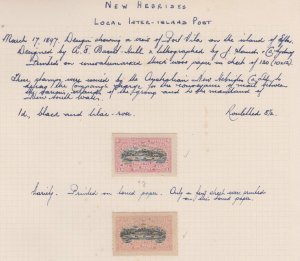 NEW HEBRIDES
LOCAL INTER-ISLAND POST
March 17, 1897. Design showing a view of Port Vila, on the island of Efate.
Designed by and lithographed by J. Sands, Sydney
Printed on unwatermarked thick wove paper in sheet of
These stamps were issued by the Australian New Hebrides Coy Ltd to
defray the company's charge for the conveyance of mail between
the various islands of the group and the mainland of
New South Wales.
1d, black and lilac-rose. Rouletted
Variety. Printed on laid paper. Only a few sheets were printed
on this laid paper.